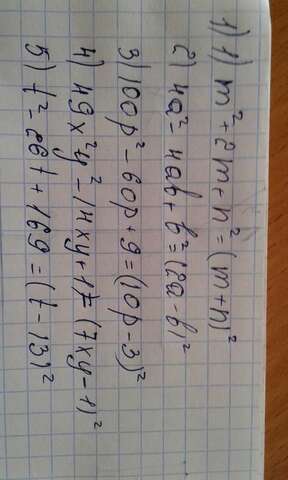 1) 1) m² + 2m + n² = (m + n)²
2) 4a² - 4ab + b² = (2a - b)²
3) 100p² - 60p + 9 = (10p - 3)²
4) 49x²y² - 14xy + 1 = (7xy - 1)²
5) t² - 26t + 169 = (t - 13)²